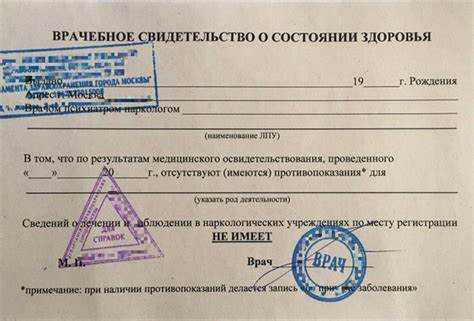 ВРАЧЕБНОЕ СВИДЕТЕЛЬСТВО О СОСТОЯНИИ ЗДОРОВЬЯ
ДЕПАРТАМЕНТА ЗДРАВООХРАНЕНИЯ ГОРОДА МОСКВЫ"
Выдано 19 г. Рождения
Адрес: Москва
Врачом психиатром наркологом
(наименование ЛПУ)
В том, что по результатам медицинского освидетельствования, проведенного
«___»_____20___г., отсутствуют (имеются) противопоказания* для
(указать род деятельности)
ДЛЯ
СПРАВОК
Сведений о лечении и наблюдении в наркологических учреждениях по месту регистрации
НЕ ИМЕЕТ
М. П. Врач
ВРАЧ
*примечание: при наличии противопоказаний делается запись «о при заболевания»